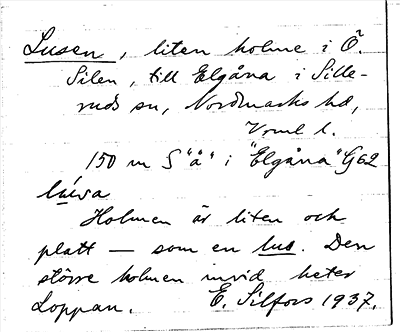 Lusen, liten holme i Ö.
Silen, till Elgåna i Sille-
ruds sn, Nordmarks hd,
Vrml l.
150 m S "å" i "Elgåna" G62
lúsa
Holmen är liten och
platt — som en lus. Den
större holmen invid heter
Loppan. E. Silfors 1937.